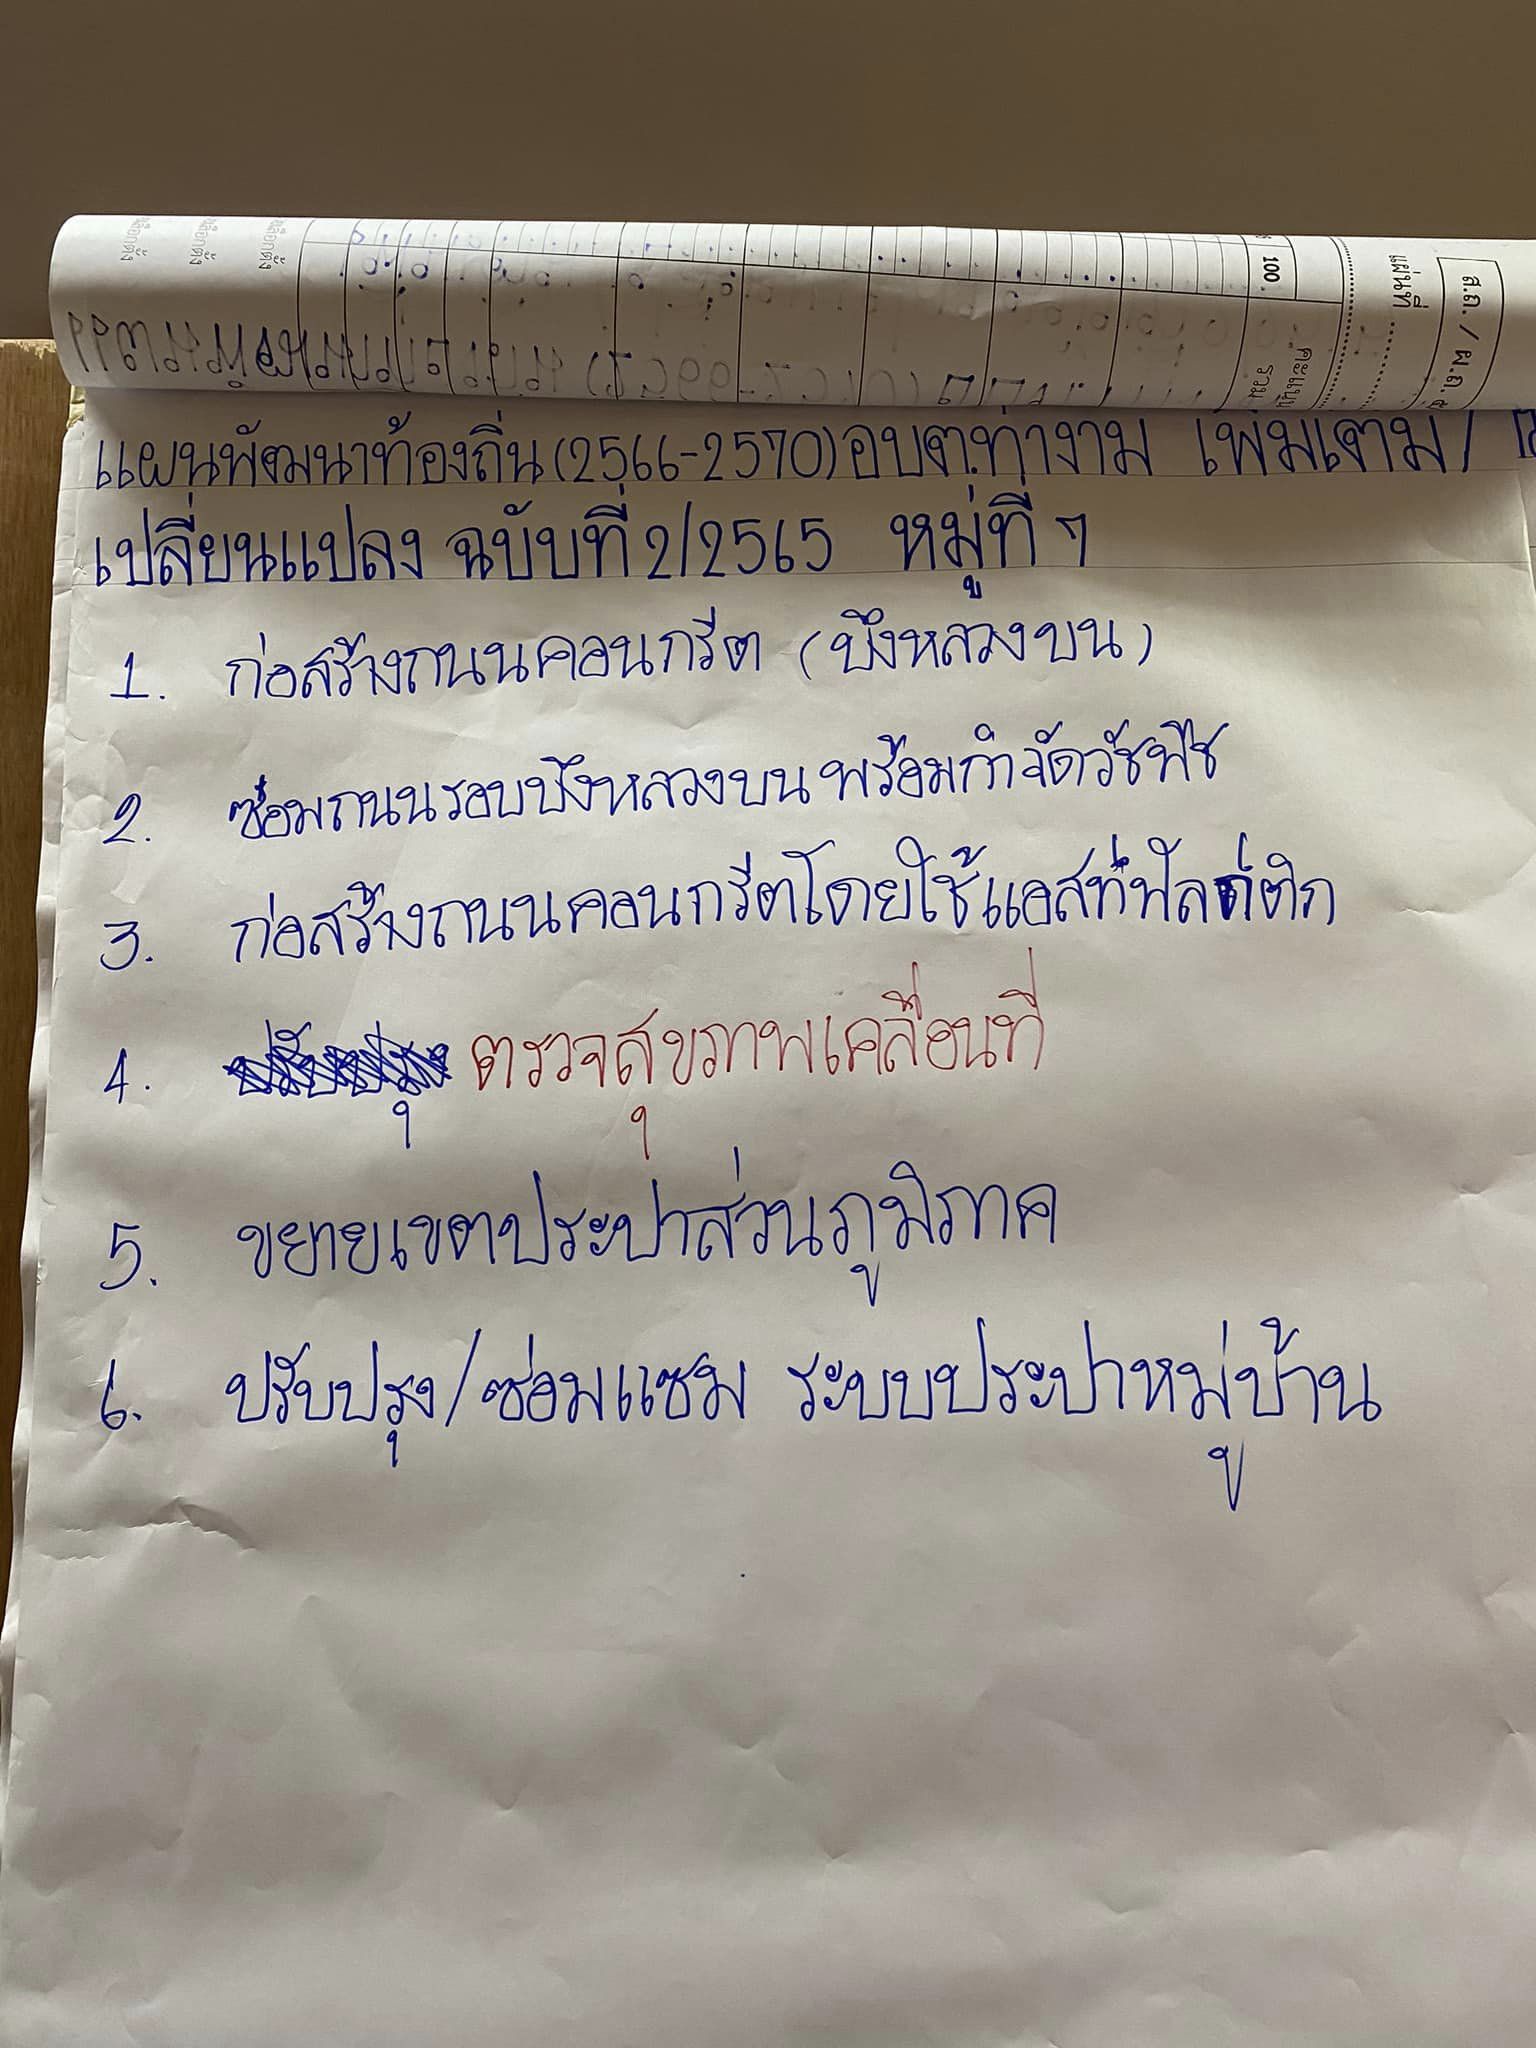 ส.ถ. / ผ.ถ. ๕
แผ่นที่
คะแนน
รวม
100
แผนพัฒนาท้องถิ่น (2566-2570) อบต.ท่างาม เพิ่มเติม/
เปลี่ยนแปลง ฉบับที่ 2/2565 หมู่ที่ 7
1. ก่อสร้างถนนคอนกรีต (บึงหลวงบน)
2. ซ่อมถนนรอบบึงหลวงบนพร้อมกำจัดวัชพืช
3. ก่อสร้างถนนคอนกรีตโดยใช้แอสฟัลต์ติก
4. ตรวจสุขภาพเคลื่อนที่
5. ขยายเขตประปาส่วนภูมิภาค
6. ปรับปรุง/ซ่อมแซม ระบบประปาหมู่บ้าน